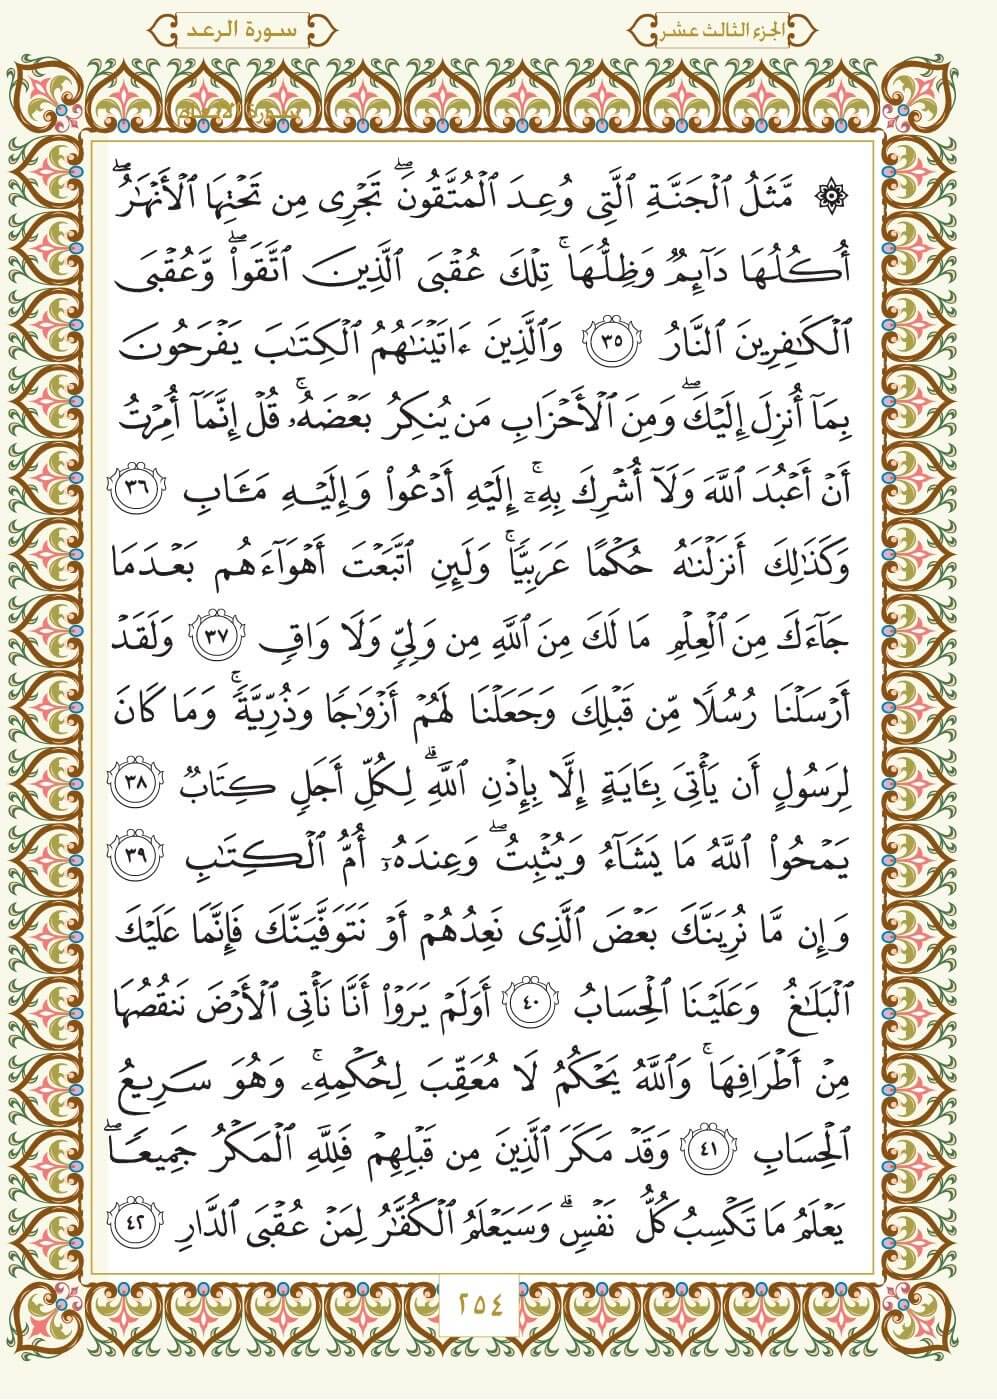 الجزء الثالث عشر
سورة الرعد
۞ مَّثَلُ ٱلۡجَنَّةِ ٱلَّتِي وُعِدَ ٱلۡمُتَّقُونَۖ تَجۡرِي مِن تَحۡتِهَا ٱلۡأَنۡهَٰرُۖ
أُكُلُهَا دَآئِمٞ وَظِلُّهَاۚ تِلۡكَ عُقۡبَى ٱلَّذِينَ ٱتَّقَواْۖ وَّعُقۡبَى
ٱلۡكَٰفِرِينَ ٱلنَّارُ ٣٥ وَٱلَّذِينَ ءَاتَيۡنَٰهُمُ ٱلۡكِتَٰبَ يَفۡرَحُونَ
بِمَآ أُنزِلَ إِلَيۡكَۖ وَمِنَ ٱلۡأَحۡزَابِ مَن يُنكِرُ بَعۡضَهُۥۚ قُلۡ إِنَّمَآ أُمِرۡتُ
أَنۡ أَعۡبُدَ ٱللَّهَ وَلَآ أُشۡرِكَ بِهِۦٓۚ إِلَيۡهِ أَدۡعُواْ وَإِلَيۡهِ مَـَٔابِ ٣٦
وَكَذَٰلِكَ أَنزَلۡنَٰهُ حُكۡمًا عَرَبِيّٗاۚ وَلَئِنِ ٱتَّبَعۡتَ أَهۡوَآءَهُم بَعۡدَمَا
جَآءَكَ مِنَ ٱلۡعِلۡمِ مَا لَكَ مِنَ ٱللَّهِ مِن وَلِيّٖ وَلَا وَاقٖ ٣٧ وَلَقَدۡ
أَرۡسَلۡنَا رُسُلٗا مِّن قَبۡلِكَ وَجَعَلۡنَا لَهُمۡ أَزۡوَٰجٗا وَذُرِّيَّةٗۚ وَمَا كَانَ
لِرَسُولٍ أَن يَأۡتِيَ بِـَٔايَةٍ إِلَّا بِإِذۡنِ ٱللَّهِۗ لِكُلِّ أَجَلٖ كِتَابٞ ٣٨
يَمۡحُواْ ٱللَّهُ مَا يَشَآءُ وَيُثۡبِتُۖ وَعِندَهُۥٓ أُمُّ ٱلۡكِتَٰبِ ٣٩
وَإِن مَّا نُرِيَنَّكَ بَعۡضَ ٱلَّذِي نَعِدُهُمۡ أَوۡ نَتَوَفَّيَنَّكَ فَإِنَّمَا عَلَيۡكَ
ٱلۡبَلَٰغُ وَعَلَيۡنَا ٱلۡحِسَابُ ٤٠ أَوَلَمۡ يَرَوۡاْ أَنَّا نَأۡتِي ٱلۡأَرۡضَ نَنقُصُهَا
مِنۡ أَطۡرَافِهَاۚ وَٱللَّهُ يَحۡكُمُ لَا مُعَقِّبَ لِحُكۡمِهِۦۚ وَهُوَ سَرِيعُ
ٱلۡحِسَابِ ٤١ وَقَدۡ مَكَرَ ٱلَّذِينَ مِن قَبۡلِهِمۡ فَلِلَّهِ ٱلۡمَكۡرُ جَمِيعٗاۖ
يَعۡلَمُ مَا تَكۡسِبُ كُلُّ نَفۡسٖۗ وَسَيَعۡلَمُ ٱلۡكُفَّٰرُ لِمَنۡ عُقۡبَى ٱلدَّارِ ٤٢
٢٥٤